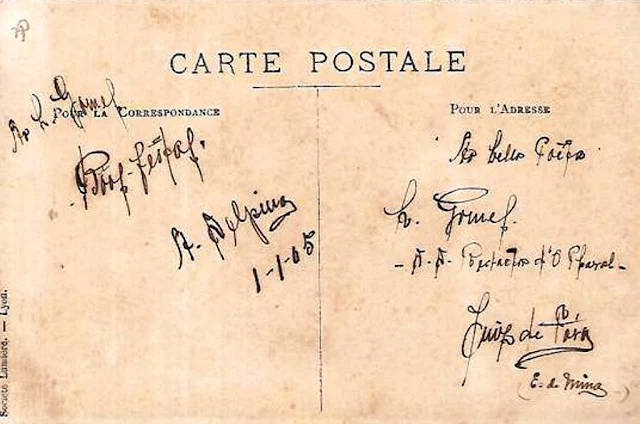 CARTE POSTALE
POUR LA CORRESPONDANCE
POUR L'ADRESSE
Ao L. Gomes
Boas-festas.
A. Delpino
1-1-05
Ao bello Poeta
L. Gomes.
- D. D. Redactor d'O Pharol -
Juiz de Fóra
(E. de Mina
Société Lumière. — Lyon.